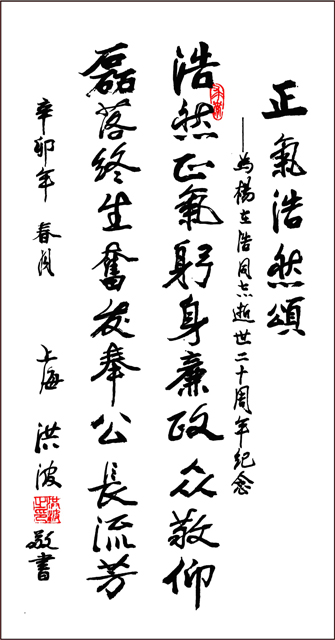 正氣浩然頌
——為楊在浩同志逝世二十周年纪念
浩然正氣躬身廉政众敬仰
磊落终生奮发奉公長流芳
辛卯年 春月 上海 洪波 敬書
洪波之印